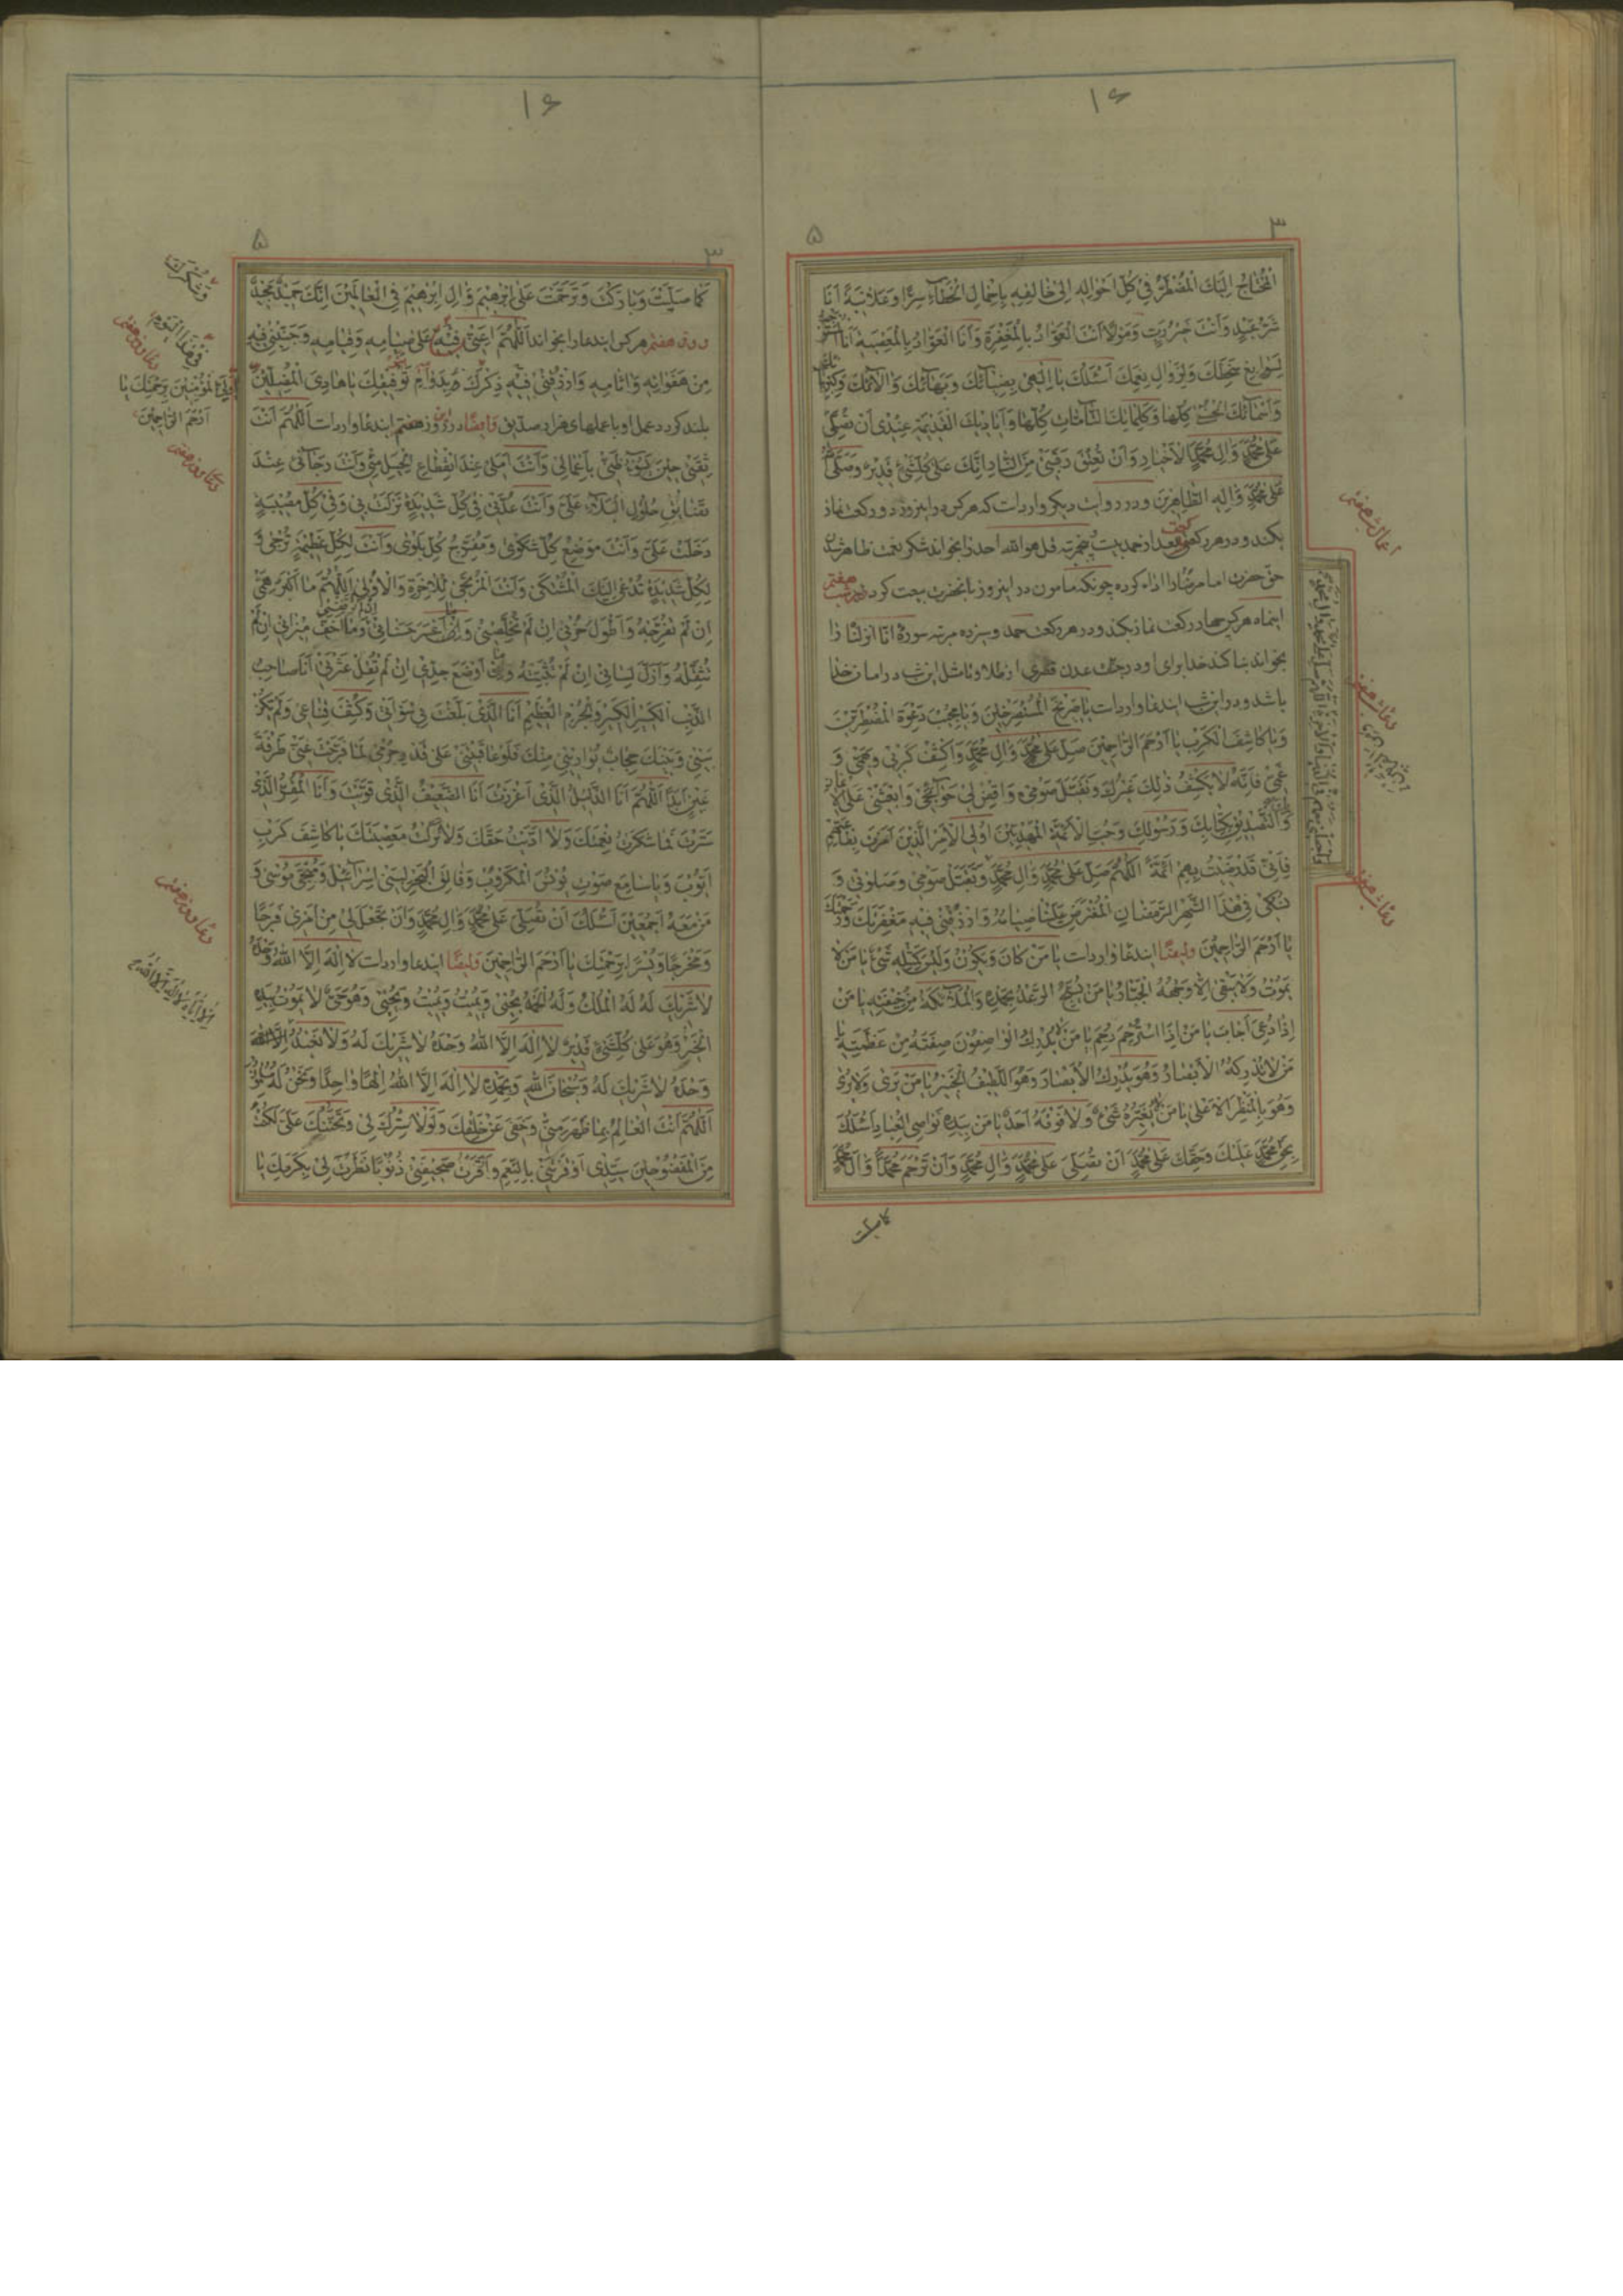 ۱۶
۳
۵
اَلْمُحْتاجُ اِلَیْكَ الْمُضْطَرُّ فی كُلِّ اَحْوالِهِ اِلی خالِقِهِ سِرًّا وَ عَلانِیَةً اَنَا
شَرُّ عَبْدٍ وَ اَنْتَ خَیْرُ رَبٍّ وَ مَوْلًا اَنْتَ الْعَوّادُ بِالْمَغْفِرَةِ وَ اَنَا الْعَوّادُ بِالْمَعْصِیَةِ اَنَا
سَخَطِكَ وَ لِزَوالِ نِعَمِكَ اَسْئَلُكَ یا اِلهی وَ بَهائِكَ وَ الائِكَ
وَ اَسْمائِكَ الْحُسْنی كُلِّها وَ كَلِماتِكَ التّامّاتِ كُلِّها وَ اَیادیكَ الْقَدیمَةِ عِنْدی اَنْ تُصَلِّیَ
عَلی مُحَمَّدٍ وَ الِ مُحَمَّدٍ الْاَخْیارِ وَ اَنْ تُعْتِقَ رَقَبَتی مِنَ النّارِ اِنَّكَ عَلی كُلِّ شَیْءٍ قَدیرٌ وَ صَلَّی
عَلی مُحَمَّدٍ وَ الِهِ الطّاهِرینَ و در روایت دیكر وارد است كه هر كس در این روز دو ركعت نماز
بكند و در هر ركعتی بعد از حمد بیست پنج مرتبه قل هو الله احد را بخواند شكر نعمت ظاهر شدن
حق حضرت امام رضا را اداء كرده چونكه مامون در این روز بانحضرت بیعت كرد و در شب هفتم
اینماه هر كس چهار ركعت نماز بكند و در هر ركعت حمد و سیزده مرتبه سورهٔ انا انزلنا را
بخواند بنا كند خدا برای او در جنت عدن قصری از طلا و تا مثل این شب در امان خدا
باشد و در این شب ایندعا وارد است یا صَریخَ الْمُسْتَصْرِخینَ وَ یا مُجیبَ دَعْوَةِ الْمُضْطَرّینَ
وَ یا كاشِفَ الْكَرْبِ یا اَرْحَمَ الرّاحِمینَ صَلِّ عَلی مُحَمَّدٍ وَ الِ مُحَمَّدٍ وَ اكْشِفْ كَرْبی وَ هَمّی وَ
غَمّی فَاِنَّهُ لا یَكْشِفُ ذلِكَ غَیْرُكَ وَ تَقَبَّلْ صَوْمی وَ اقْضِ لی حَوائِجی وَ ابْعَثْنی عَلَی
وَ التَّصْدیقِ بِكِتابِكَ وَ رَسُولِكَ وَ حُبِّ الْاَئِمَّةِ الْمَهْدِیّینَ اُولِی الْاَمْرِ الَّذینَ اَمَرْتَ بِطاعَتِهِمْ
فَاِنّی قَدْ رَضیتُ بِهِمْ اَئِمَّةً اَللّهُمَّ صَلِّ عَلی مُحَمَّدٍ وَ الِ مُحَمَّدٍ وَ تَقَبَّلْ صَوْمی وَ صَلوتی وَ
نُسُكی فی هذَا الشَّهْرِ الرَّمَضانِ الْمُفْتَرَضِ عَلَیْنا صِیامُهُ وَ ارْزُقْنی فیهِ مَغْفِرَتَكَ وَ رَحْمَتَكَ
یا اَرْحَمَ الرّاحِمینَ وایضًا ایندعا وارد است یا مَنْ كانَ وَ یَكُونُ وَ لَیْسَ كَمِثْلِهِ شَیْءٌ یا مَنْ لا
یَمُوتُ وَ لا یَبْقی اِلّا وَجْهُهُ الْجَبّارُ یا مَنْ یُسَبِّحُ الرَّعْدُ بِحَمْدِهِ وَ الْمَلائِكَةُ مِنْ خیفَتِهِ یا مَنْ
اِذا دُعِیَ اَجابَ یا مَنْ اِذَا اسْتُرْحِمَ رَحِمَ یا مَنْ لا یُدْرِكُ الْواصِفُونَ صِفَتَهُ مِنْ عَظَمَتِهِ یا
مَنْ لا تُدْرِكُهُ الْاَبْصارُ وَ هُوَ یُدْرِكُ الْاَبْصارَ وَ هُوَ اللَّطیفُ الْخَبیرُ یا مَنْ یَری وَ لا یُری
وَ هُوَ بِالْمَنْظَرِ الْاَعْلی یا مَنْ لا یُعِزُّهُ شَیْءٌ وَ لا فَوْقَهُ اَحَدٌ یا مَنْ بِیَدِهِ نَواصِی الْعِبادِ اَسْئَلُكَ
بِحَقِّ مُحَمَّدٍ عَلَیْكَ وَ حَقِّكَ عَلی مُحَمَّدٍ اَنْ تُصَلِّیَ عَلی مُحَمَّدٍ وَ الِ مُحَمَّدٍ وَ اَنْ تَرْحَمَ مُحَمَّدًا وَ الَ مُحَمَّدٍ
كما صلیت
اعمال شب هفتم
دعاء شب هفتم
دعاء شب هفتم
۱۶
۳
۵
كَما صَلَّیْتَ وَ بارَكْتَ وَ تَرَحَّمْتَ عَلی اِبْرهیمَ وَ الِ اِبْرهیمَ فِی الْعالَمینَ اِنَّكَ حَمیدٌ مَجیدٌ
روز هفتم هر كس ایندعا را بخواند اَللّهُمَّ اَعِنّی فیهِ عَلی صِیامِهِ وَ قِیامِهِ وَ جَنِّبْنی فیهِ
مِنْ هَفَواتِهِ وَ اثامِهِ وَ ارْزُقْنی فیهِ ذِكْرَكَ بِدَوامِهِ بِتَوْفیقِكَ یا هادِیَ الْمُضِلّینَ
بلند كردد عمل او با عملهای هزار صدیق وایضًا در روز هفتم ایندعا وارد است اَللّهُمَّ اَنْتَ
ثِقَتی حینَ یَسُوءُ ظَنّی بِاَعْمالی وَ اَنْتَ اَمَلی عِنْدَ انْقِطاعِ الْحِیَلِ مِنّی وَ اَنْتَ رَجائی عِنْدَ
تَضایُقِ حُلُولِ الْبَلاءِ عَلَیَّ وَ اَنْتَ عُدَّتی فی كُلِّ شَدیدَةٍ نَزَلَتْ بی وَ فی كُلِّ مُصیبَةٍ
دَخَلَتْ عَلَیَّ وَ اَنْتَ مَوْضِعُ كُلِّ شَكْوی وَ مُفَرِّجُ كُلِّ بَلْوی وَ اَنْتَ لِكُلِّ عَظیمَةٍ تُرْجی وَ
لِكُلِّ شَدیدَةٍ تُدْعی اِلَیْكَ الْمُشْتَكی وَ اَنْتَ الْمُرْتَجی لِلْاخِرَةِ وَ الْاُولی اَللّهُمَّ ما اَكْبَرَ هَمّی
اِنْ لَمْ تُفَرِّجْهُ وَ اَطْوَلَ حُزْنی اِنْ لَمْ تُخَلِّصْنی وَ اَعْسَرَ حَسَناتی وَ ما اَخَفَّ میزانی اِنْ لَمْ
تُثَقِّلْهُ وَ اَزَلَّ لِسانی اِنْ لَمْ تُثَبِّتْهُ وَ اَوْضَعَ جَدّی اِنْ لَمْ تُقِلْ عَثْرَتی اَنَا صاحِبُ
الذَّنْبِ الْكَبیرِ وَ الْجُرْمِ الْعَظیمِ اَنَا الَّذی بَلَغَتْ بی سَوْاتی وَ كُشِفَ قِناعی وَ لَمْ یَكُنْ
بَیْنی وَ بَیْنَكَ حِجابٌ تُوارینی مِنْكَ فَلَوْ عاقَبْتَنی عَلی قَدْرِ جُرْمی لَما فَرَّجْتَ عَنّی طَرْفَةَ
عَیْنٍ اَبَدًا اَللّهُمَّ اَنَا الذَّلیلُ الَّذی اَعْزَزْتَ اَنَا الضَّعیفُ الَّذی قَوَّیْتَ وَ اَنَا الْمُقِرُّ الَّذی
سَتَرْتَ فَما شَكَرْتُ نِعْمَتَكَ وَ لا اَدَّیْتُ حَقَّكَ وَ لا تَرَكْتُ مَعْصِیَتَكَ یا كاشِفَ كَرْبِ
اَیُّوبَ وَ یا سامِعَ صَوْتِ یُونُسَ الْمَكْرُوبِ وَ فالِقَ الْبَحْرِ لِبَنی اِسْرائیلَ وَ مُنْجِیَ مُوسی وَ
مَنْ مَعَهُ اَجْمَعینَ اَسْئَلُكَ اَنْ تُصَلِّیَ عَلی مُحَمَّدٍ وَ الِ مُحَمَّدٍ وَ اَنْ تَجْعَلَ لی مِنْ اَمْری فَرَجًا
وَ مَخْرَجًا وَ یُسْرًا بِرَحْمَتِكَ یا اَرْحَمَ الرّاحِمینَ وایضًا ایندعا وارد است لا اِلهَ اِلَّا اللهُ وَحْدَهُ
لا شَریكَ لَهُ لَهُ الْمُلْكُ وَ لَهُ الْحَمْدُ یُحْیی وَ یُمیتُ وَ یُمیتُ وَ یُحْیی وَ هُوَ حَیٌّ لا یَمُوتُ بِیَدِهِ
الْخَیْرُ وَ هُوَ عَلی كُلِّ شَیْءٍ قَدیرٌ لا اِلهَ اِلَّا اللهُ وَحْدَهُ لا شَریكَ لَهُ وَ لا نَعْبُدُ اِلَّا اللهَ
وَحْدَهُ لا شَریكَ لَهُ وَ سُبْحانَ اللهِ وَ بِحَمْدِهِ لا اِلهَ اِلَّا اللهُ اِلهًا واحِدًا وَ نَحْنُ لَهُ مُسْلِمُونَ
اَللّهُمَّ اَنْتَ الْعالِمُ بِما ظَهَرَ مِنّی وَ خَفِیَ عَنْ خَلْقِكَ وَ لَوْلا سِتْرُكَ لی وَ تَحَنُّنُكَ عَلَیَّ لَكُنْتُ
مِنَ الْمَفْضُوحینَ سَیِّدی اَوْقَرْتَنی بِالنِّعَمِ وَ اَوْقَرْتُ صَحیفَتی ذُنُوبًا نَظَرْتَ لی بِكَرَمِكَ یا
وَ شُكْرَكَ
فی هذَا الْیَوْمِ
دعاء روز هفتم
الْمُؤْمِنینَ بِرَحْمَتِكَ یا
اَرْحَمَ الرّاحِمینَ
دعاء روز هفتم
دعاء روز هفتم